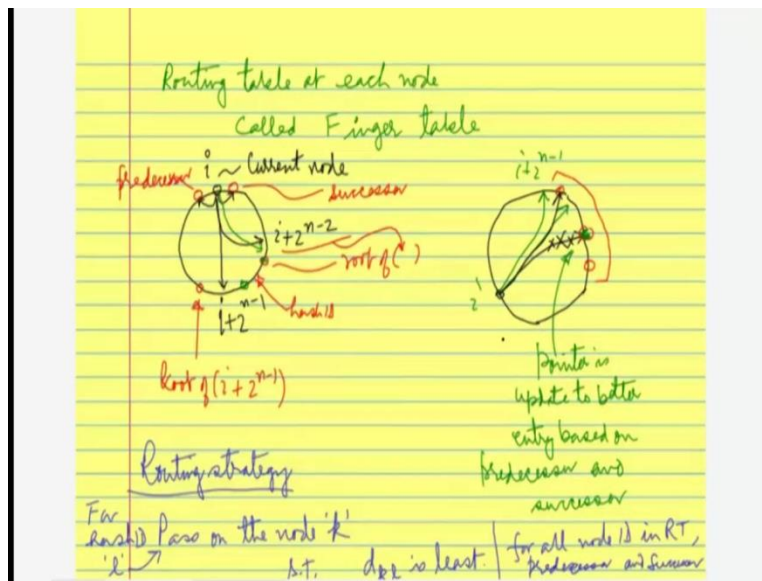 Routing table at each node
Called Finger table
i ~ Current node
predecessor
successor
i+2^{n-2}
root of ( )
hash id
i+2^{n-1}
Root of (i+2^{n-1})
i+2^{n-1}
i
pointer is
update to better
entry based on
predecessor and
successor
Routing strategy
For
hash ID Pass on the node 'k'
'l'
s.t. d_{kl} is least.
for all node id in RT,
predecessor and successor